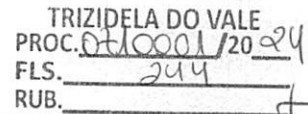 TRIZIDELA DO VALE
PROC. 0710001 /20 24
FLS. 244
RUB.